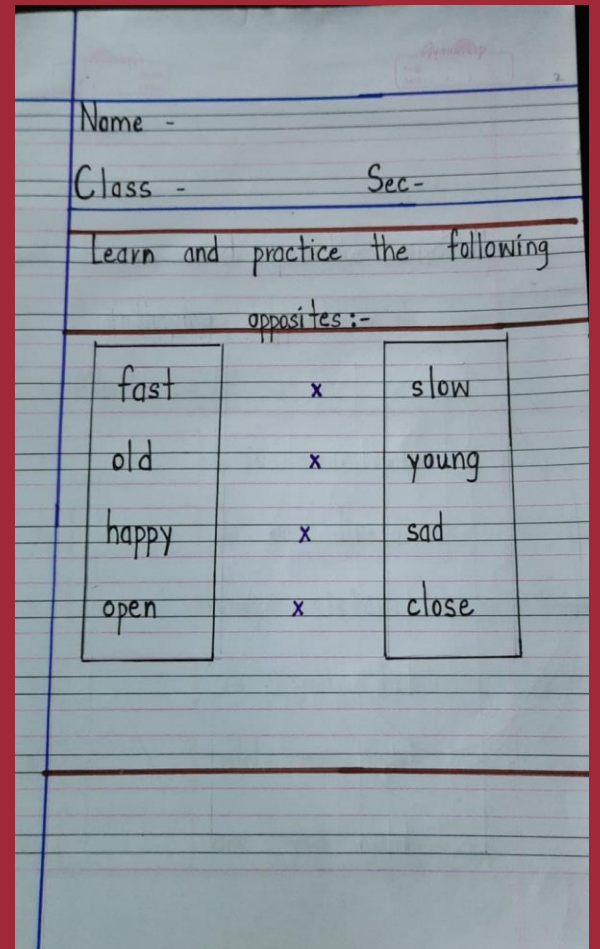 Name -
Class - Sec-
Learn and practice the following
opposites :-
fast x slow
old x young
happy x sad
open x close